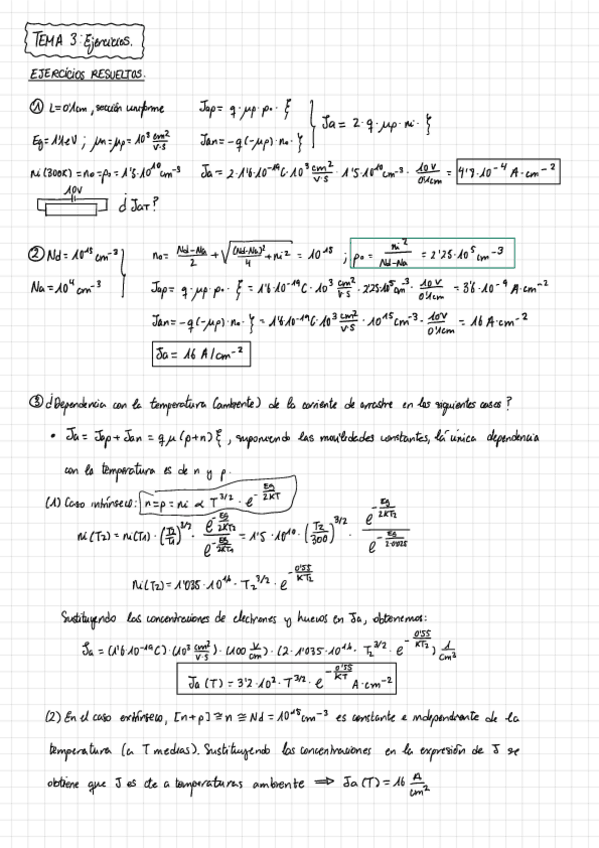 TEMA 3: Ejercicios.
EJERCICIOS RESUELTOS.
① L=0'1cm, sección uniforme   Jap = q·μp·p₀·ξ
Ja = 2·q·μp·ni·ξ
Eg=1'1eV ; μn=μp=10³ cm²/V·s   Jan=-q(-μp)·n₀·ξ
ni(300K)=n₀=p₀=1'5·10¹⁰cm⁻³   Ja=2·1'6·10⁻¹⁹C·10³ cm²/V·s · 1'5·10¹⁰cm⁻³ · 10V/0'1cm = 4'8·10⁻⁴ A·cm⁻²
10V
¿JaT?
② Nd=10¹⁵cm⁻³   n₀ = (Nd-Na)/2 + √((Nd-Na)²/4 + ni²) = 10¹⁵ ; p₀ = ni²/(Nd-Na) = 2'25·10⁵cm⁻³
Na=10⁴cm⁻³   Jap=q·μp·p₀·ξ = 1'6·10⁻¹⁹C·10³ cm²/V·s · 2'25·10⁵cm⁻³ · 10V/0'1cm = 3'6·10⁻⁹ A·cm⁻²
Jan=-q(-μp)·n₀·ξ = 1'6·10⁻¹⁹C·10³ cm²/V·s · 10¹⁵cm⁻³ · 10V/0'1cm = 16A·cm⁻²
Ja = 16 A/cm⁻²
③ ¿Dependencia con la temperatura (ambiente) de la corriente de arrastre en los siguientes casos?
• Ja = Jap + Jan = qμ(p+n)ξ, suponiendo las movilidades constantes, la única dependencia
con la temperatura es de n y p.
(1) Caso intrínseco: n=p=ni ∝ T^3/2 · e^(-Eg/2KT)
ni(T2)=ni(T1)·(T2/T1)^3/2 · e^(-Eg/2KT2) / e^(-Eg/2KT1) = 1'5·10¹⁰·(T2/300)^3/2 · e^(-Eg/2KT2) / e^(-Eg/2·0'025)
ni(T2)=1'035·10¹⁶·T2^3/2·e^(-0'55/KT2)
Sustituyendo las concentraciones de electrones y huecos en Ja, obtenemos:
Ja = (1'6·10⁻¹⁹C)·(10³ cm²/V·s)·(100 V/cm)·(2·1'035·10¹⁶·T2^3/2·e^(-0'55/KT2)) 1/cm³
Ja(T) = 3'2·10²·T^3/2·e^(-0'55/KT) A·cm⁻²
(2) En el caso extrínseco, [n+p]≅n≅Nd=10¹⁵cm⁻³ es constante e independiente de la
temperatura (a T medias). Sustituyendo las concentraciones en la expresión de J se
obtiene que J es cte a temperaturas ambiente ⟹ Ja(T)=16 A/cm²